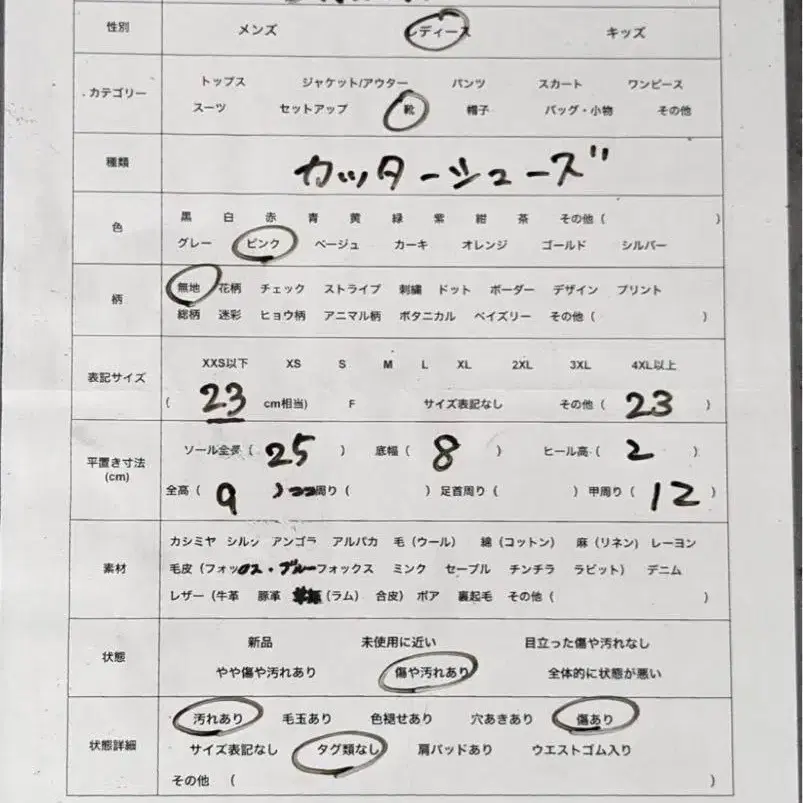 性別 メンズ レディース キッズ
カテゴリー
トップス ジャケット/アウター パンツ スカート ワンピース
スーツ セットアップ 靴 帽子 バッグ・小物 その他
種類 カッターシューズ
色
黒 白 赤 青 黄 緑 紫 紺 茶 その他 ( )
グレー ピンク ベージュ カーキ オレンジ ゴールド シルバー
柄
無地 花柄 チェック ストライプ 刺繍 ドット ボーダー デザイン プリント
総柄 迷彩 ヒョウ柄 アニマル柄 ボタニカル ペイズリー その他 ( )
表記サイズ
XXS以下 XS S M L XL 2XL 3XL 4XL以上
( 23 cm相当) F サイズ表記なし その他 ( 23 )
平置き寸法
(cm)
ソール全長 ( 25 ) 底幅 ( 8 ) ヒール高 ( 2 )
全高 ( 9 ) 周り ( ) 足首周り ( ) 甲周り ( 12 )
素材
カシミヤ シルク アンゴラ アルパカ 毛 (ウール) 綿 (コットン) 麻 (リネン) レーヨン
毛皮 (フォックス・ブルーフォックス ミンク セーブル チンチラ ラビット) デニム
レザー (牛革 豚革 (ラム) 合皮) ボア 裏起毛 その他 ( )
状態
新品 未使用に近い 目立った傷や汚れなし
やや傷や汚れあり 傷や汚れあり 全体的に状態が悪い
状態詳細
汚れあり 毛玉あり 色褪せあり 穴あきあり 傷あり
サイズ表記なし タグ類なし 肩パッドあり ウエストゴム入り
その他 ( )